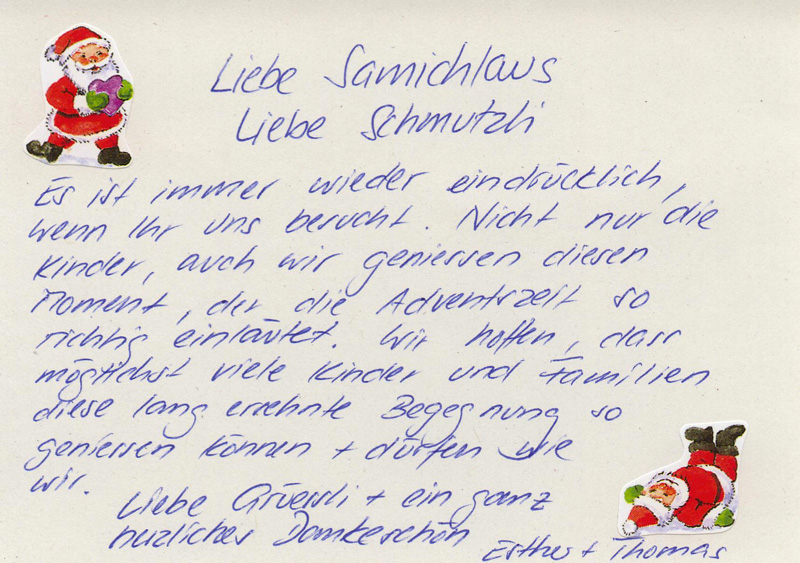 Liebe Samichlaus
Liebe Schmutzli
Es ist immer wieder eindrücklich,
wenn Ihr uns besucht. Nicht nur die
Kinder, auch wir geniessen diesen
Moment, der die Adventszeit so
richtig einläutet. Wir hoffen, dass
möglichst viele Kinder und Familien
diese lang ersehnte Begegnung so
geniessen können + dürfen wie
wir.
Liebe Grüessli + ein ganz
herzliches Dankeschön
Esther + Thomas